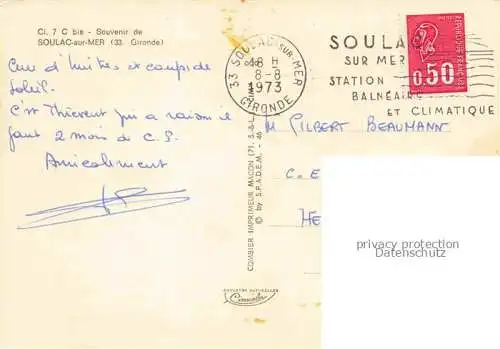 Cl. 7 C bis - Souvenir de
SOULAC-sur-MER (33. Gironde)
Cure d'huitres et coups de
soleil.
C'est Thievent qui a raison il
faut 2 mois de C.P.
Amicalement
33 SOULAC-SUR-MER
18 H
8-8
1973
GIRONDE
SOULAC
SUR MER
STATION
BALNÉAIRE
ET CLIMATIQUE
0,50
M GILBERT BEAUMANN
C.E
HE
COMBIER IMPRIMEUR MACON (71. S.-&-L.
© by S.P.A.D.E.M. - 46
Combier
privacy protection
Datenschutz